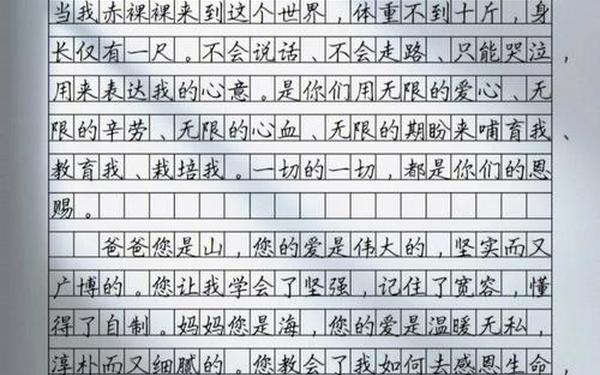 当我赤裸裸来到这个世界，体重不到十斤，身
长仅有一尺。不会说话、不会走路、只能哭泣，
用来表达我的心意。是你们用无限的爱心、无
限的辛劳、无限的心血、无限的期盼来哺育我、
教育我、栽培我。一切的一切，都是你们的恩
赐。
爸爸您是山，您的爱是伟大的，坚实而又
广博的。您让我学会了坚强，记住了宽容，懂
得了自制。妈妈您是海，您的爱是温暖无私，
淳朴而又细腻的。您教会了我如何去感恩生命，